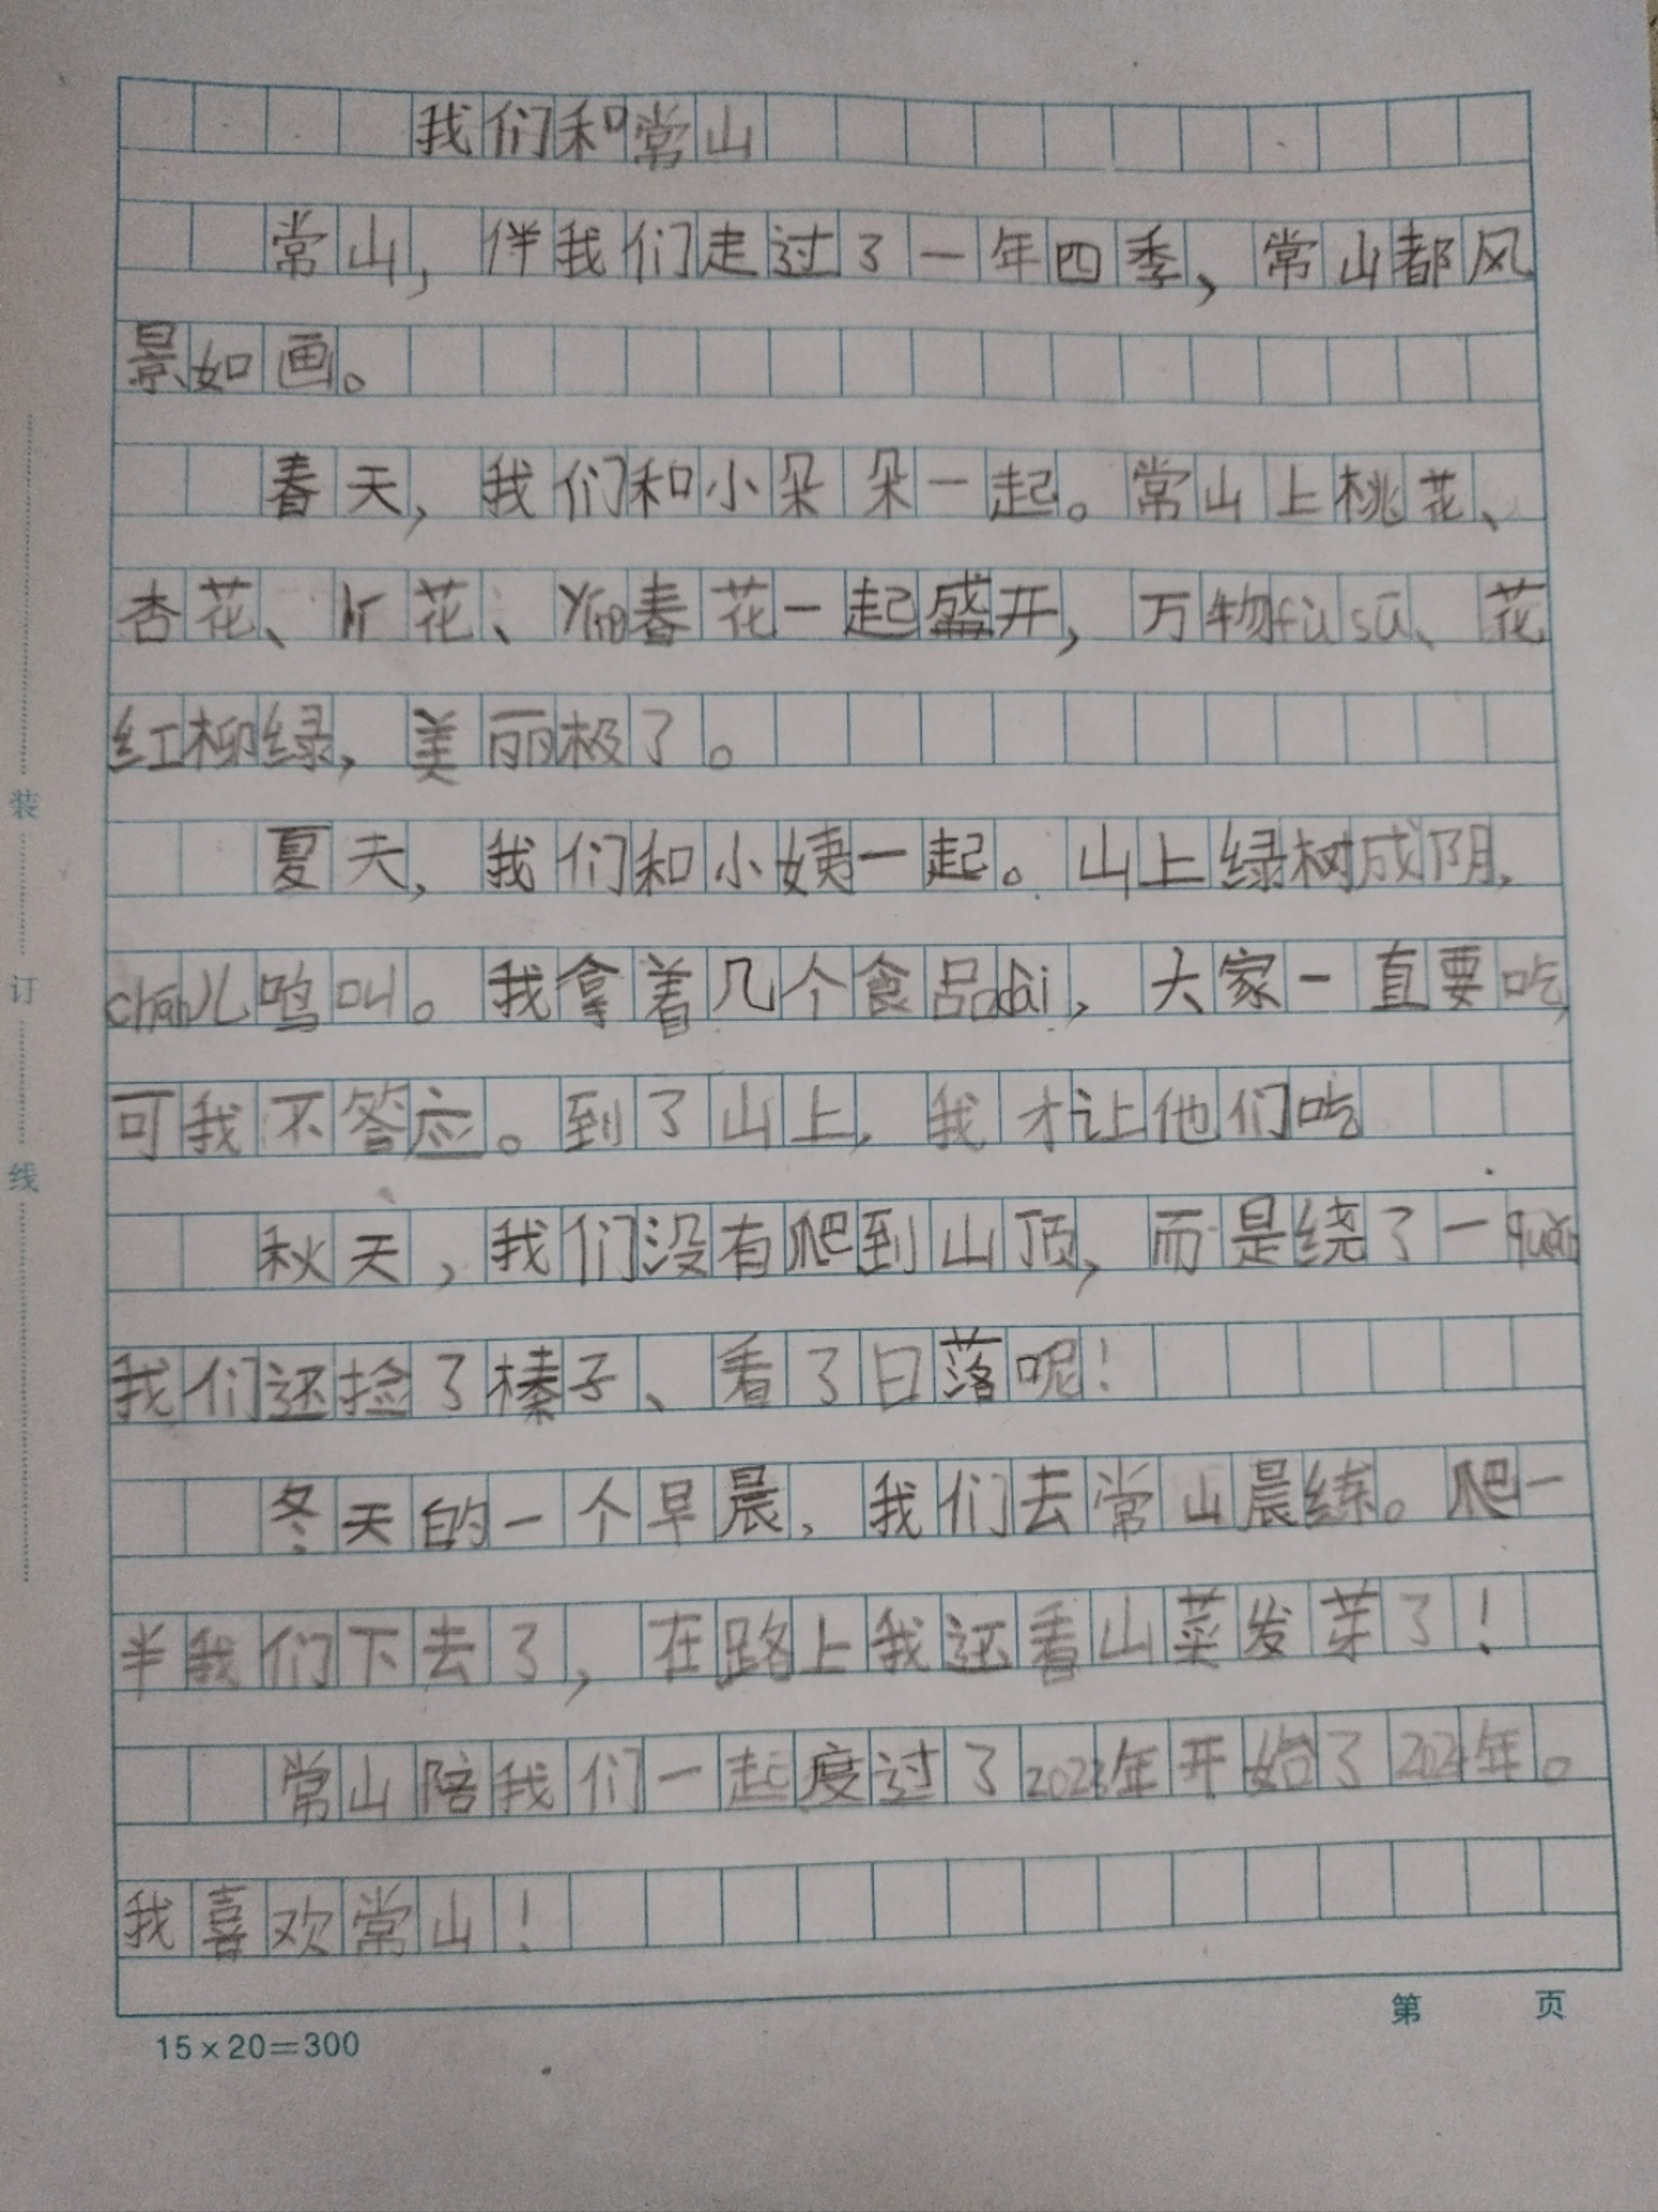 我们和常山
常山，伴我们走过了一年四季，常山都风
景如画。
春天，我们和小朵朵一起。常山上桃花、
杏花、花、yíng春花一起盛开，万物fù sū、花
红柳绿，美丽极了。
夏天，我们和小姨一起。山上绿树成阴，
chán儿鸣叫。我拿着几个食品dài，大家一直要吃，
可我不答应。到了山上，我才让他们吃
秋天，我们没有爬到山顶，而是绕了一quān
我们还捡了榛子、看了日落呢！
冬天的一个早晨，我们去常山晨练。爬一
半我们下去了，在路上我还看山菜发芽了！
常山陪我们一起度过了2023年开始了2024年。
我喜欢常山！
15×20=300
第 页
装
订
线